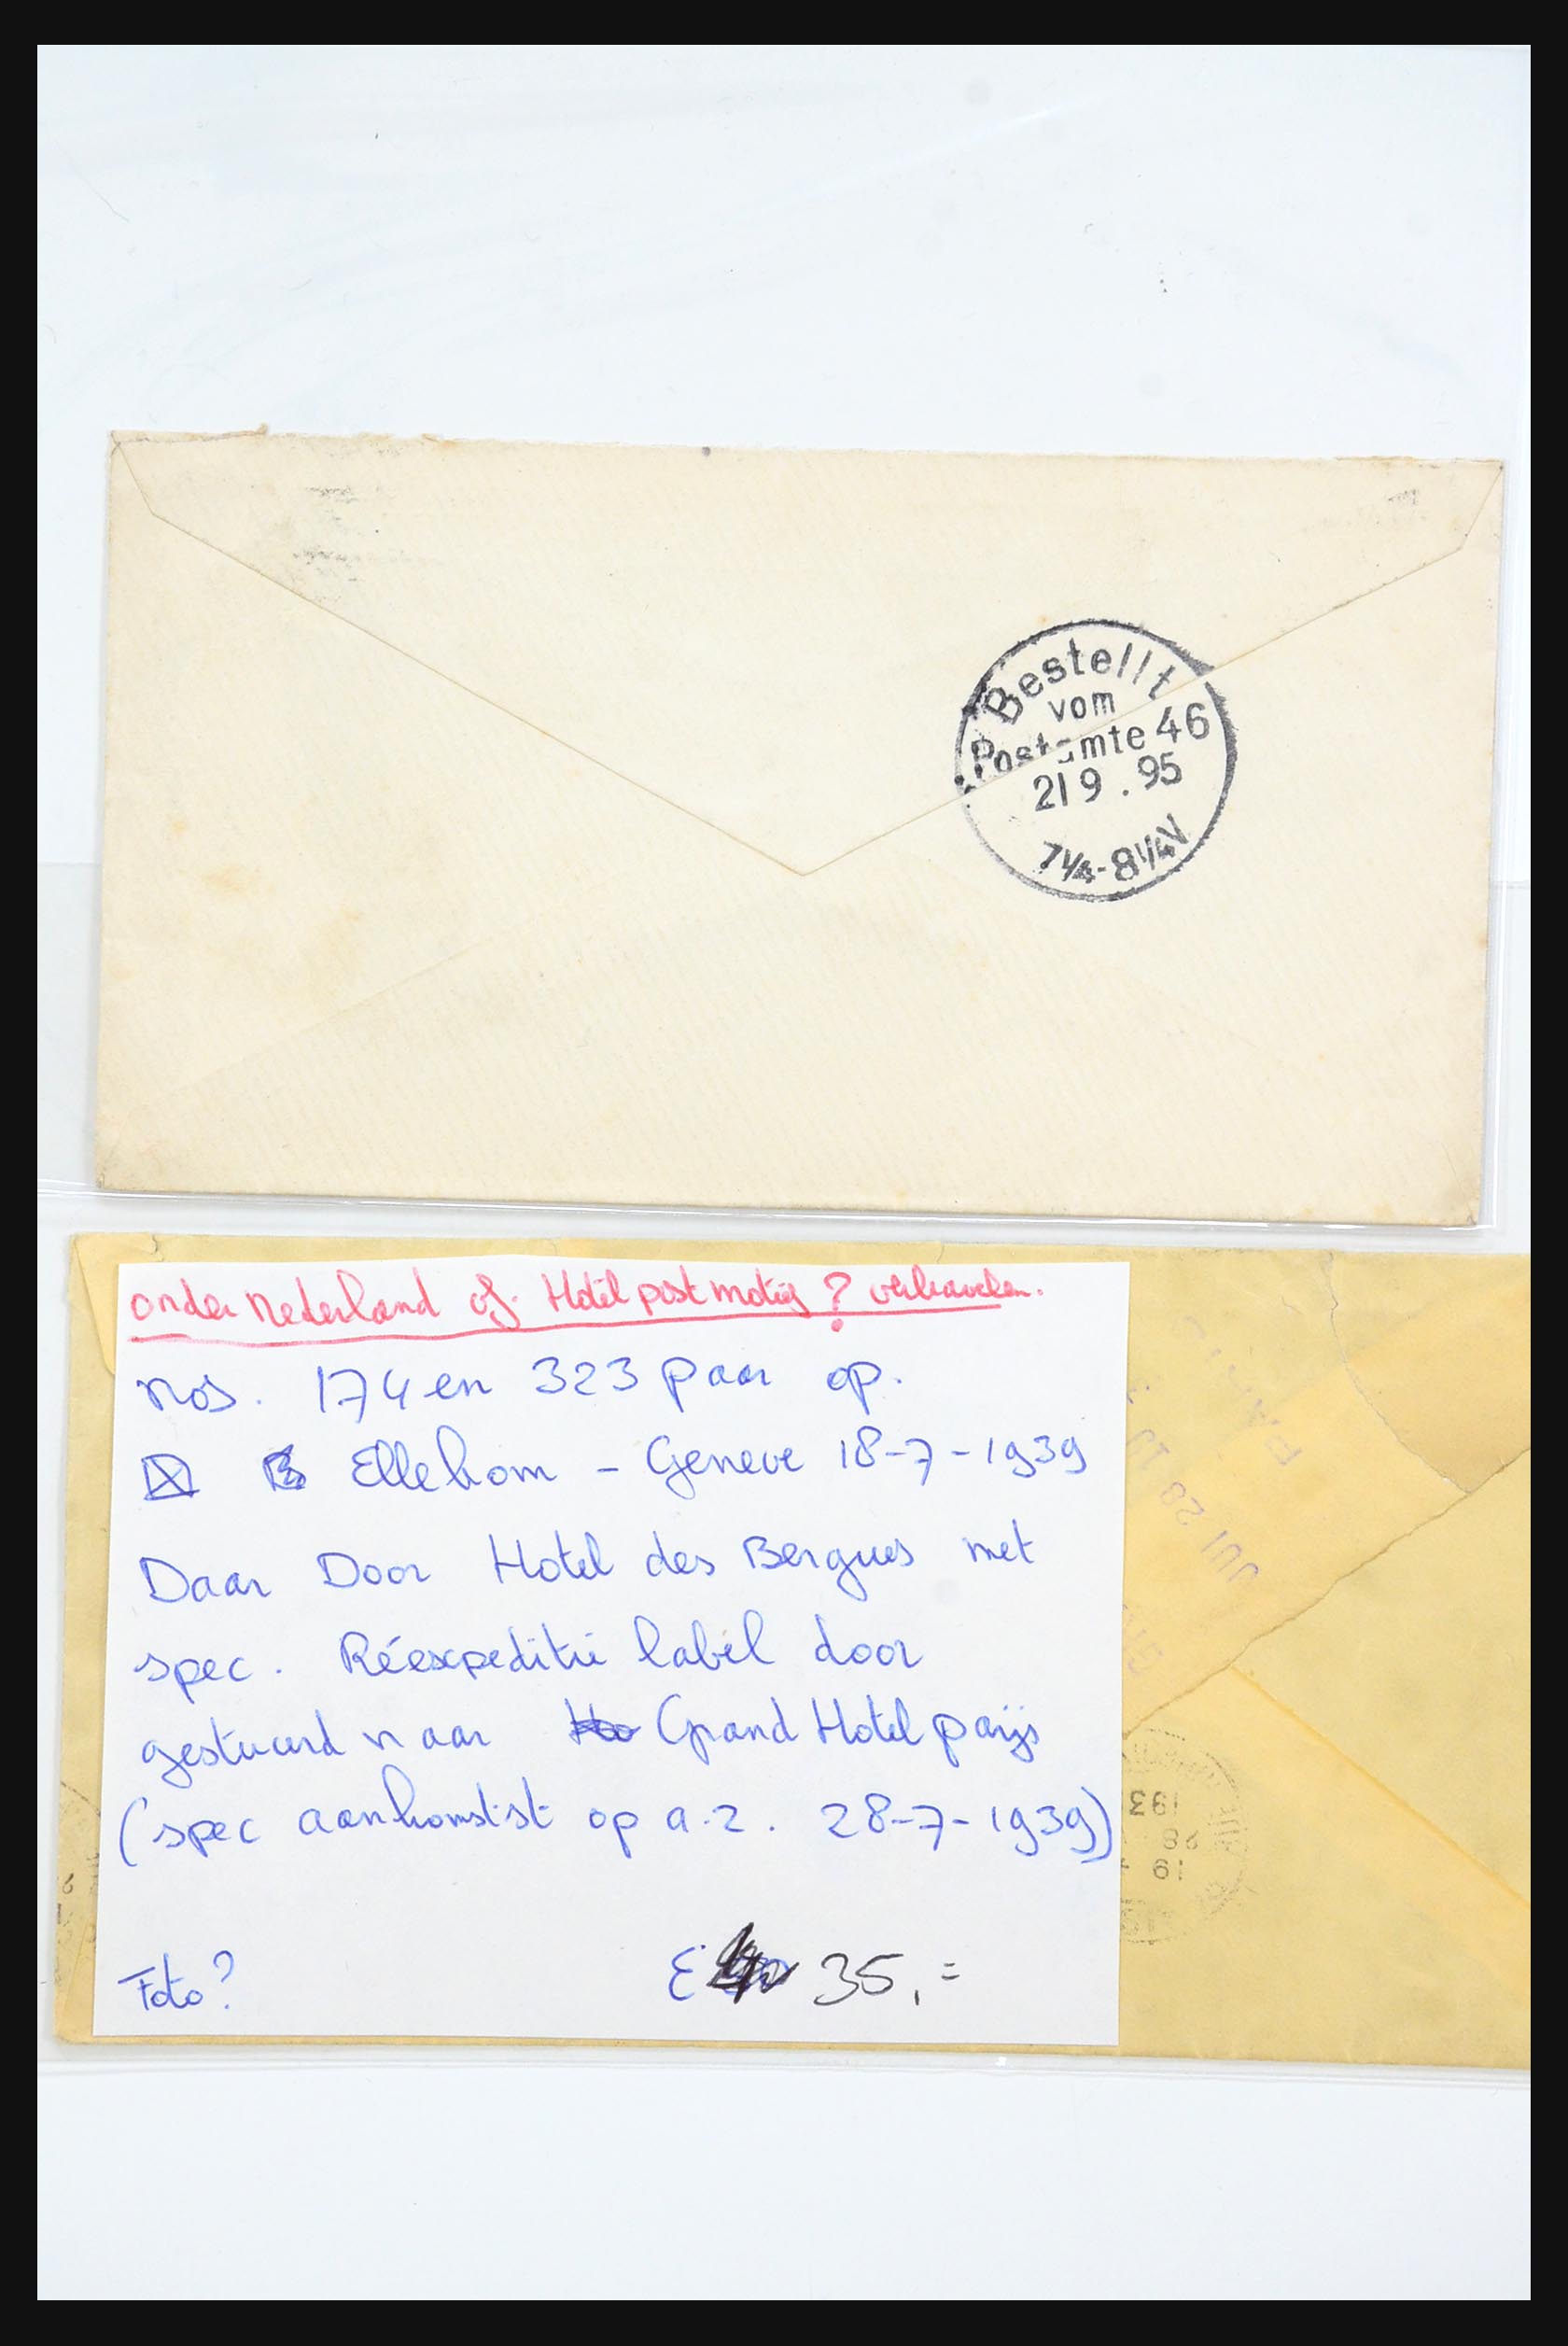 Bestellt
vom
Postamte 46
21 9 . 95
7 1/4 - 8 1/4 V
onder nederland of. Hotel post motief ? verkavelen.
nos. 174 en 323 paar op.
Ellekom - Geneve 18-7-1939
Daar Door Hotel des Bergues met
spec. Réexpeditie label door
gestuurd naar Grand Hotel parijs
(spec aankomstst op a.z. 28-7-1939)
Foto? E 35,=
PARIS
JUI 28
193
28
19